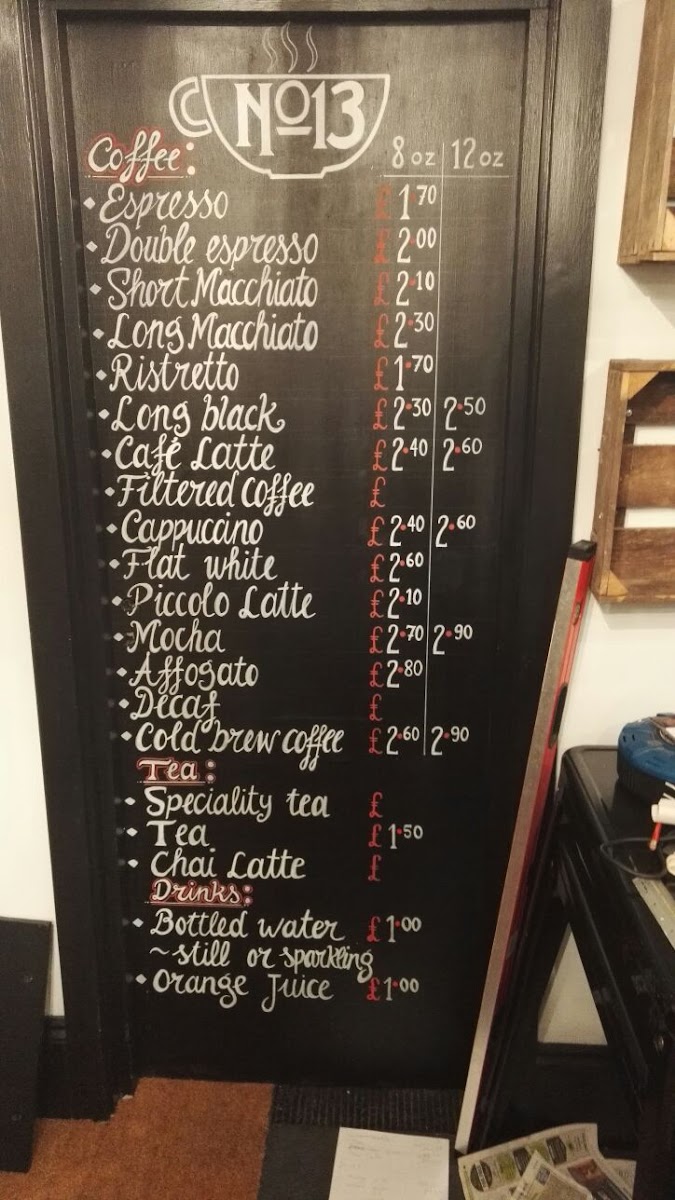 No13
Coffee: 8 oz 12 oz
Espresso £ 1.70
Double espresso £ 2.00
Short Macchiato £ 2.10
Long Macchiato £ 2.30
Ristretto £ 1.70
Long black £ 2.30 2.50
Café Latte £ 2.40 2.60
Filtered coffee £
Cappuccino £ 2.40 2.60
Flat white £ 2.60
Piccolo Latte £ 2.10
Mocha £ 2.70 2.90
Affogato £ 2.80
Decaf £
Cold brew coffee £ 2.60 2.90
Tea:
Speciality tea £
Tea £ 1.50
Chai Latte £
Drinks:
Bottled water £ 1.00
~still or sparkling
Orange Juice £ 1.00